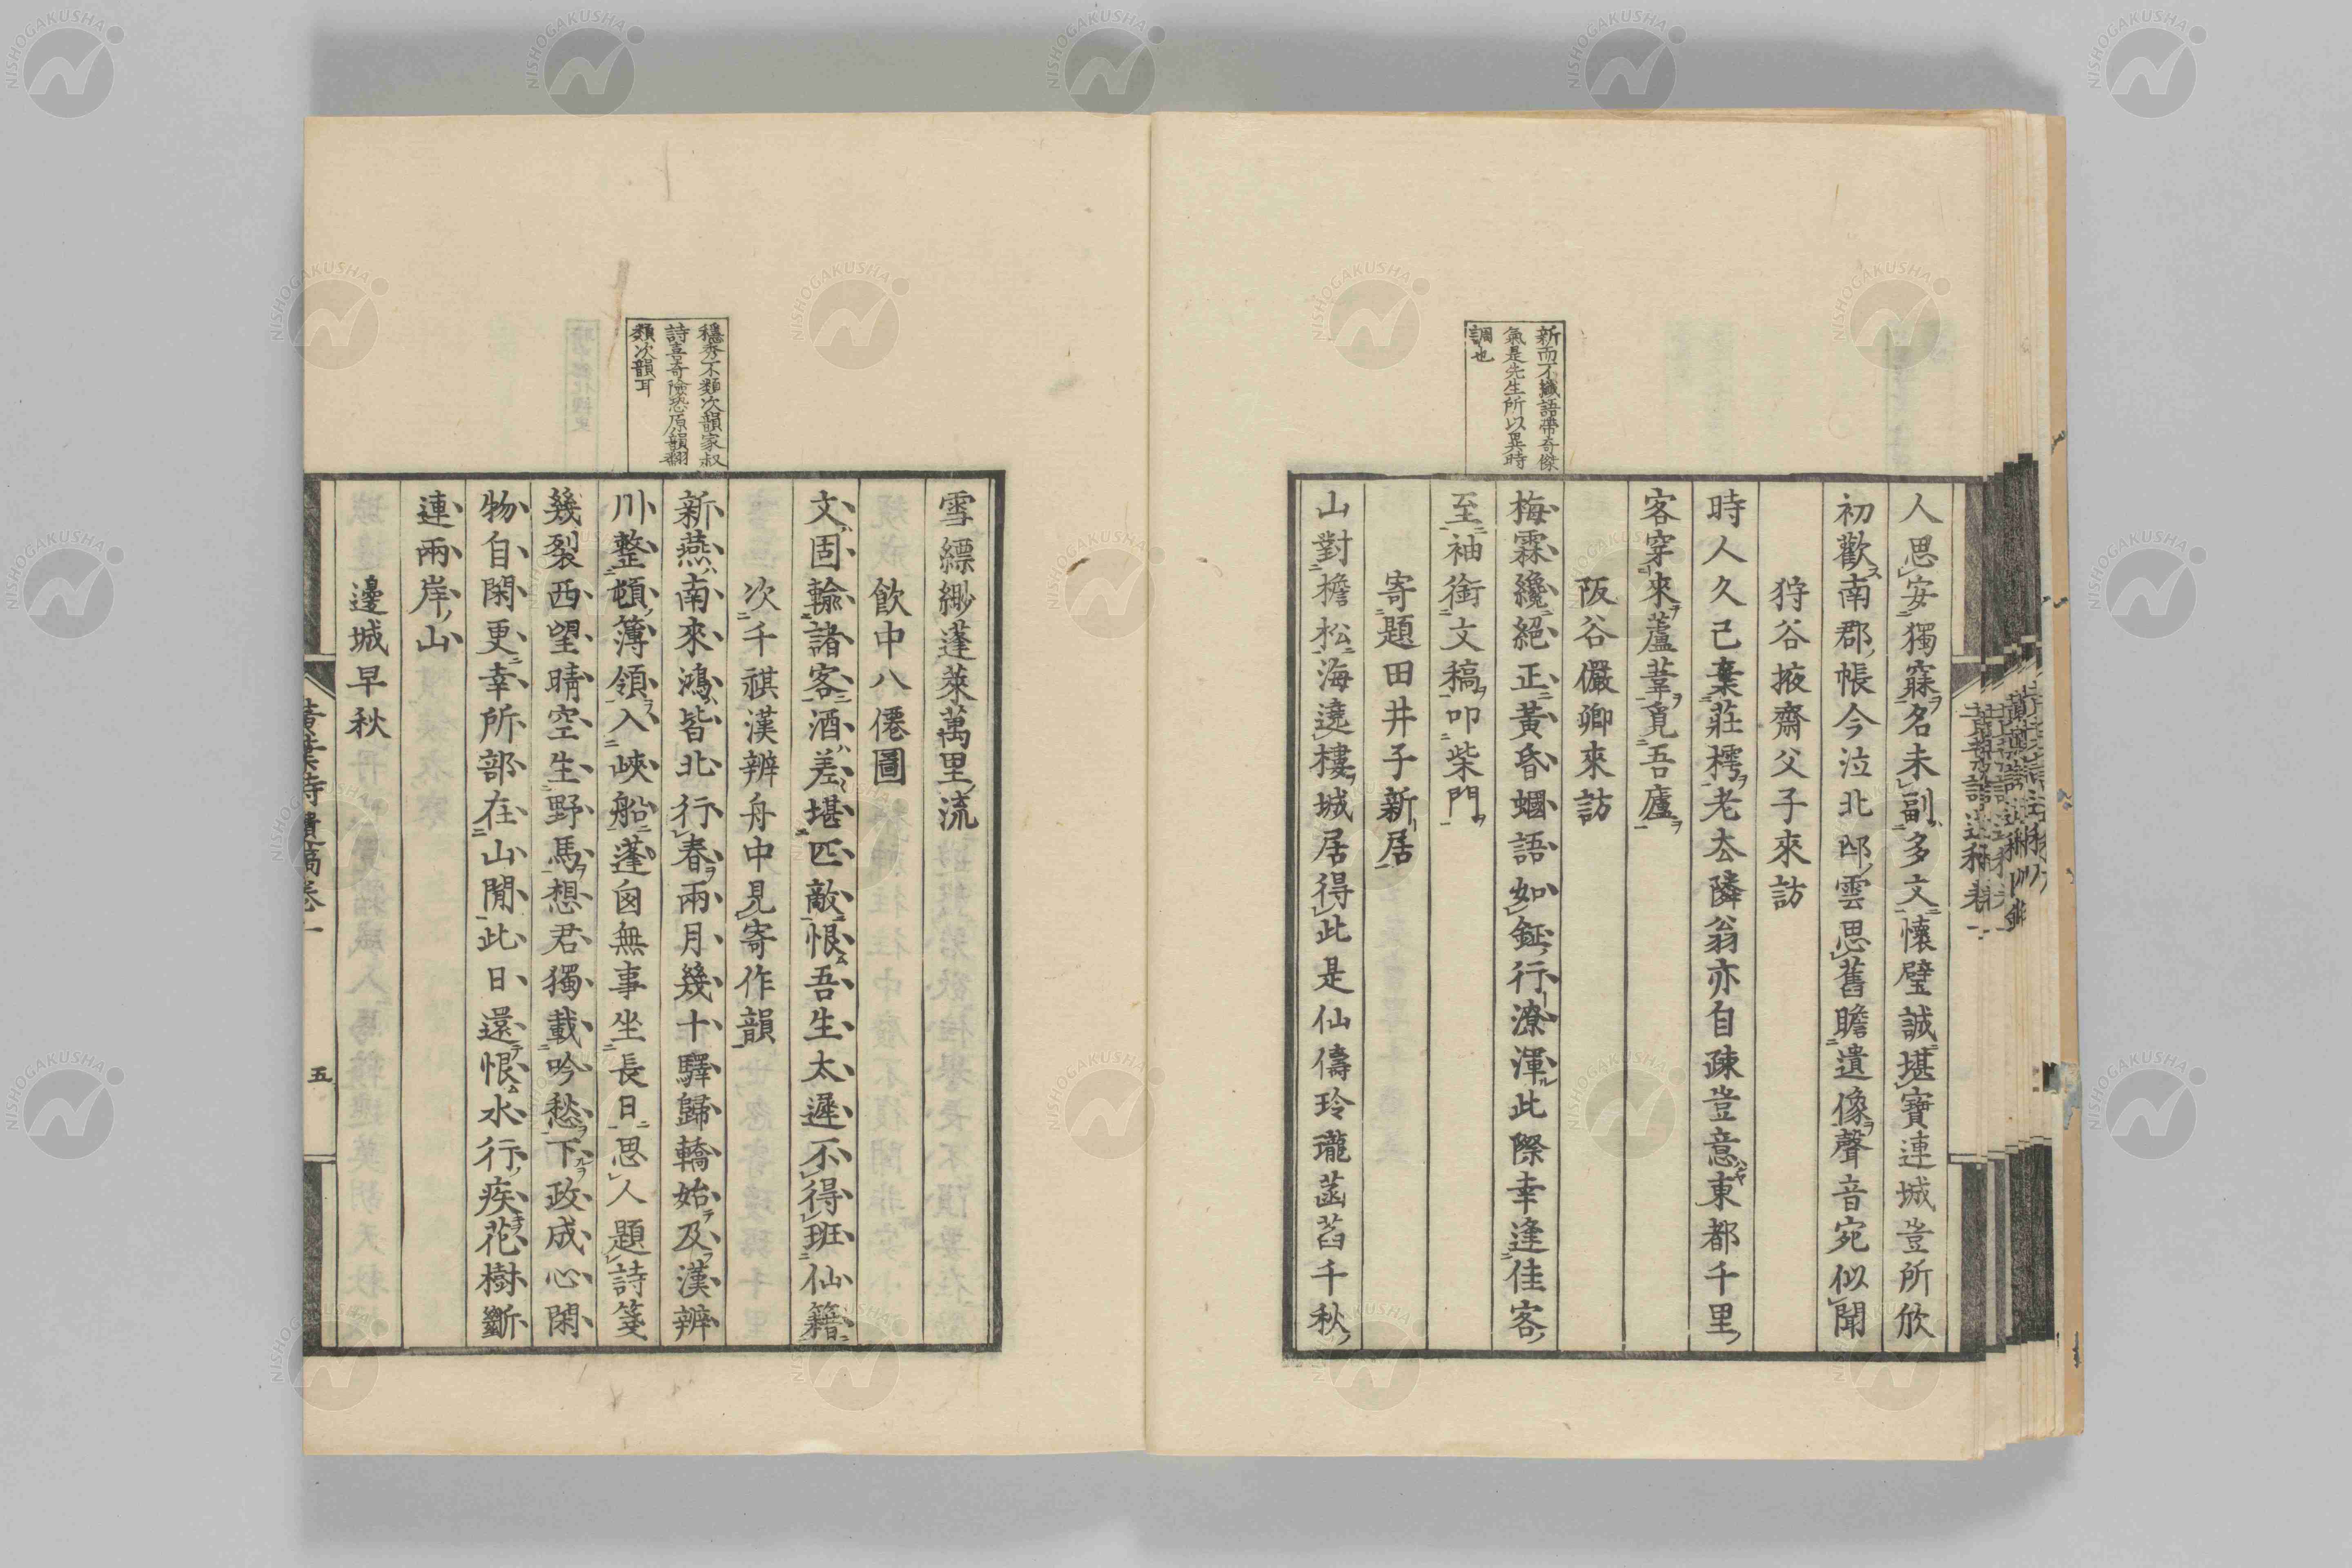 人思安獨寐名未副多文懷璧誠堪寶連城豈所欣
初歡南郡帳今泣北邙雲思舊瞻遺像聲音宛似聞
狩谷掖齋父子來訪
時人久已棄莊樗老去隣翁亦自疎豈意東都千里
客穿來蘆葦覓吾廬
阪谷儼卿來訪
新而不纎語帶奇傑
氣是先生所以異時
調也
梅霖纔絕正黃昏蟈語如鉦行潦渾此際幸逢佳客
至袖銜文稿叩柴門
寄題田井子新居
山對檐松海遶樓城居得此是仙儔玲瓏菡萏千秋
雪縹緲蓬萊萬里流
飲中八僊圖
文固輸諸客酒差堪匹敵恨吾生太遲不得班仙籍
次千祺漢辨舟中見寄作韻
穩秀不類次韻家叔
詩喜奇險恐原韻翻
類次韻耳
新燕南來鴻皆北行春兩月幾十驛歸轎始及漢辨
川整頓簿領入峽船蓬囱無事坐長日思人題詩箋
幾裂西望晴空生野馬想君獨載吟愁下政成心閑
物自閑更幸所部在山閒此日還恨水行疾花樹斷
連兩岸山
邊城早秋
黃葉詩遺稿卷一
五
NISHOGAKUSHA